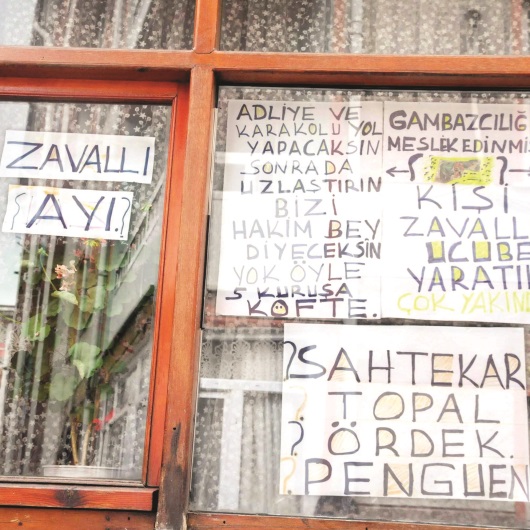 ZAVALLI
AYI.
ADLİYE VE
KARAKOLU YOL
YAPACAKSIN
SONRADA
UZLAŞTIRIN
BİZİ
HAKİM BEY
DİYECEKSİN
YOK ÖYLE
5 KURUŞA
KÖFTE.
GAMBAZCILIĞ
MESLEK EDİNMİŞ
KİŞİ
ZAVALL
UCUBE
YARATI
ÇOK YAKIN
?SAHTEKAR
? TOPAL
? ÖRDEK.
? PENGUEN